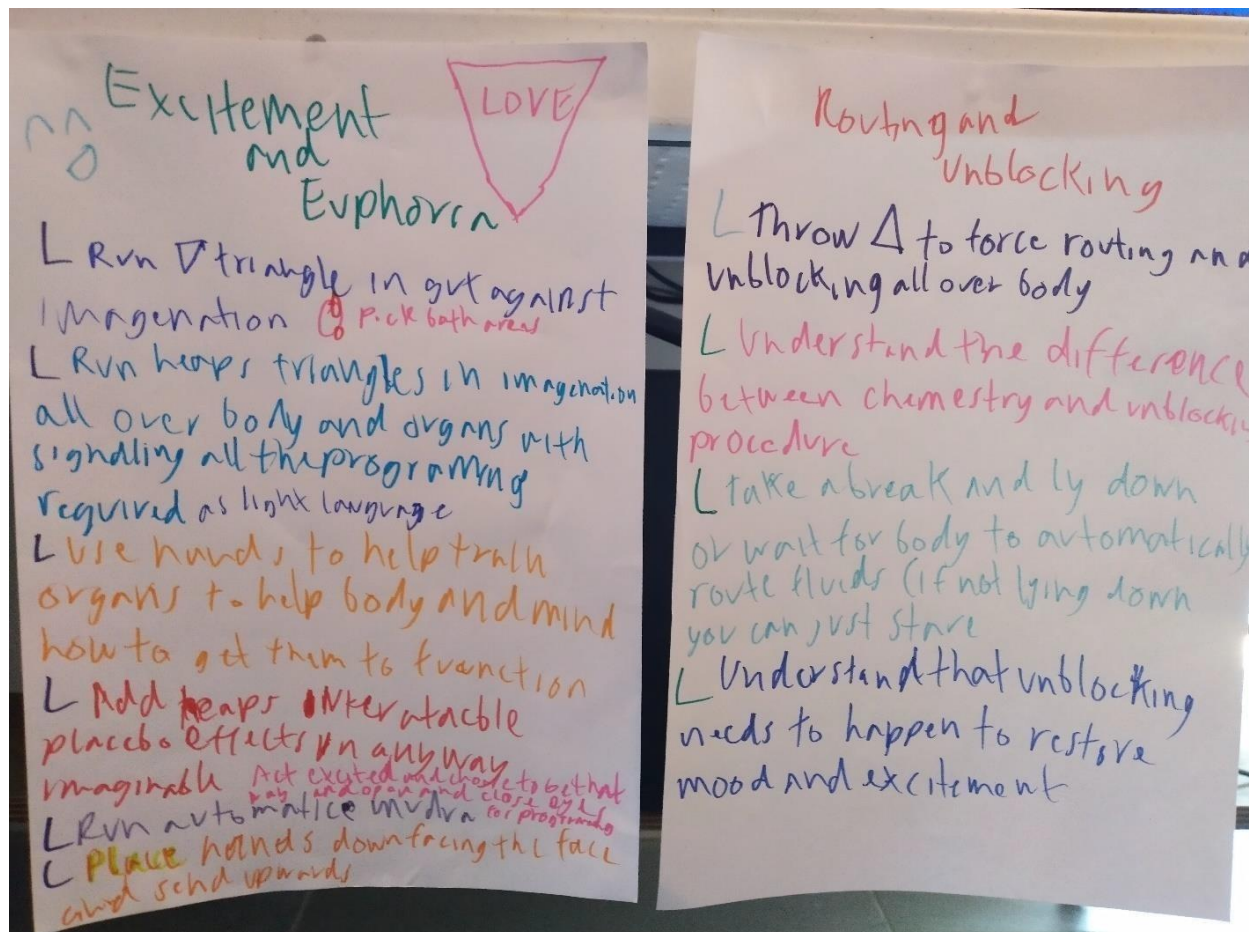 Excitement
and
Euphoria
LOVE
L Run ▽ triangle in gut against
imagenation Pick both areas
L Run heaps triangles in imagenation
all over body and organs with
signalling all the programing
required as light language
L Use hands to help train
organs to help body and mind
how to get them to function
L Add heaps
placebo effects in anyway
imaginable Act excited and chose to be that
way and open and close eyes
L Run automatice mudra for programing
L Place hands down facing the face
and send upwards
Routing and
Unblocking
L Throw △ to force routing and
unblocking all over body
L Understand the difference
between chemestry and unblocking
procedure
L take a break and ly down
or wait for body to automatically
route fluids (if not lying down
you can just stare
L Understand that unblocking
needs to happen to restore
mood and excitement